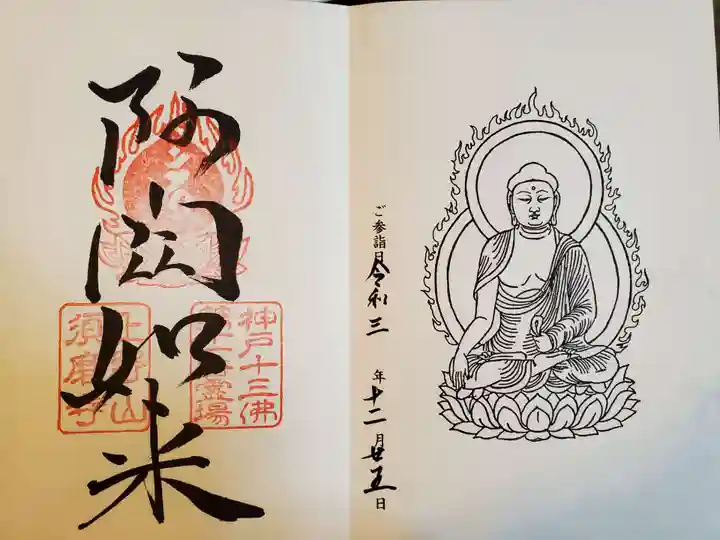 ご参詣日令和三年十二月廿五日
阿閦如来
神戸十三佛
第十一番霊場
上野山
須磨寺